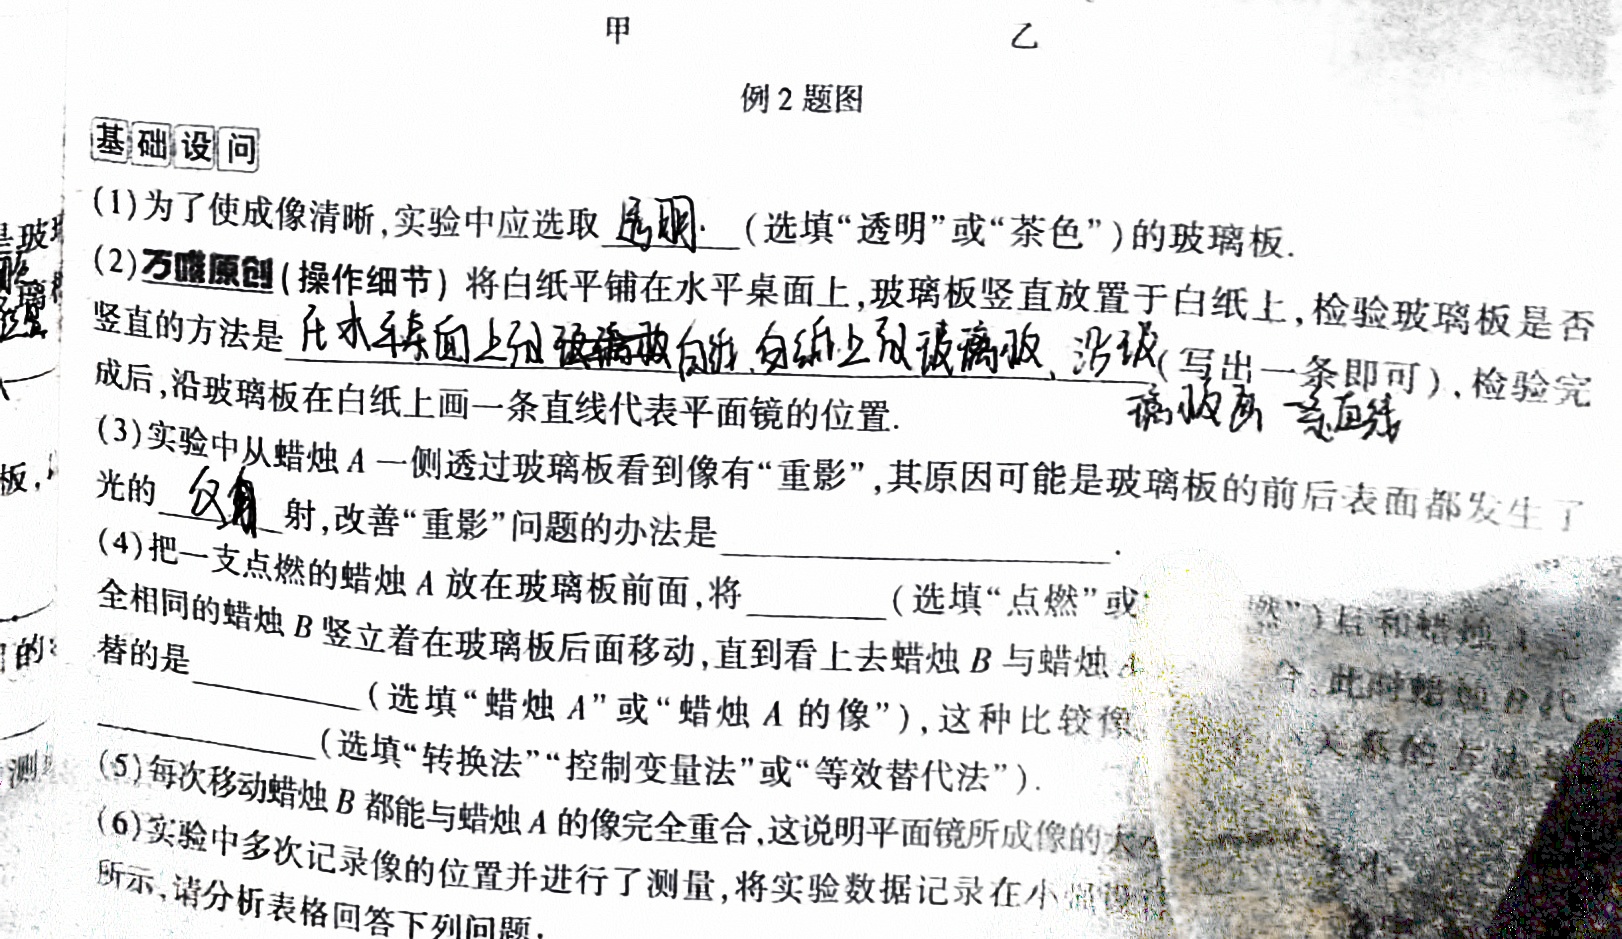 甲 乙
例2题图
基础设问
(1)为了使成像清晰,实验中应选取 透明. (选填“透明”或“茶色”)的玻璃板.
(2)万唯原创(操作细节) 将白纸平铺在水平桌面上,玻璃板竖直放置于白纸上,检验玻璃板是否
竖直的方法是 在水平桌面上放 白纸,白纸上放玻璃板,沿玻 (写出一条即可),检验完
璃板画一条直线
成后,沿玻璃板在白纸上画一条直线代表平面镜的位置.
(3)实验中从蜡烛A一侧透过玻璃板看到像有“重影”,其原因可能是玻璃板的前后表面都发生了
光的 射,改善“重影”问题的办法是
(4)把一支点燃的蜡烛A放在玻璃板前面,将 (选填“点燃”或“ 燃”)后和蜡烛A完
全相同的蜡烛B竖立着在玻璃板后面移动,直到看上去蜡烛B与蜡烛 此时蜡烛B代
替的是 (选填“蜡烛A”或“蜡烛A的像”),这种比较像 关系的方法是
(选填“转换法”“控制变量法”或“等效替代法”).
(5)每次移动蜡烛B都能与蜡烛A的像完全重合,这说明平面镜所成像的大小
(6)实验中多次记录像的位置并进行了测量,将实验数据记录在
所示,请分析表格回答下列问题.
是玻
板,
的
测